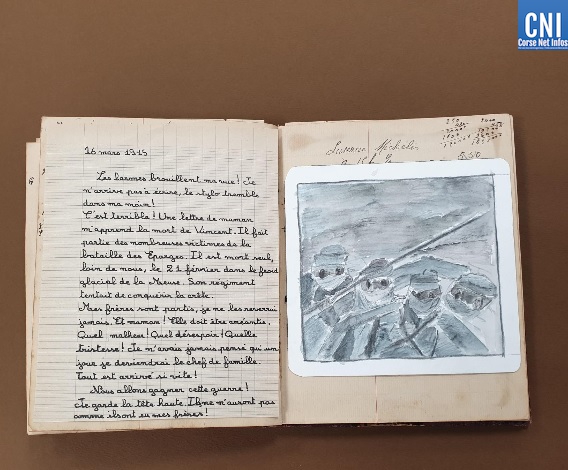 CNI
Corse Net Infos
16 mars 1915
Les larmes brouillent ma vue ! Je
n'arrive pas à écrire, le stylo tremble
dans ma main !
C'est terrible ! Une lettre de maman
m'apprend la mort de Vincent. Il fait
partie des nombreuses victimes de la
bataille des Eparges. Il est mort seul,
loin de nous, le 21 février dans le froid
glacial de la Meuse. Son régiment
tentait de conquérir la crête.
Mes frères sont partis, je ne les reverrai
jamais. Et maman ! Elle doit être anéantie.
Quel malheur ! Quel désespoir ! Quelle
tristesse ! Je n'avais jamais pensé qu'un
jour je deviendrai le chef de famille.
Tout est arrivé si vite !
Nous allons gagner cette guerre !
Je garde la tête haute. Ils ne m'auront pas
comme ils ont eu mes frères !